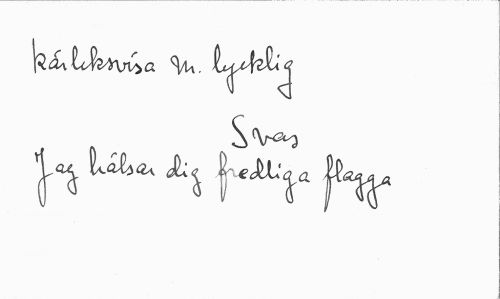 kärleksvisa m. lycklig
Svas
Jag hälsar dig fredliga flagga